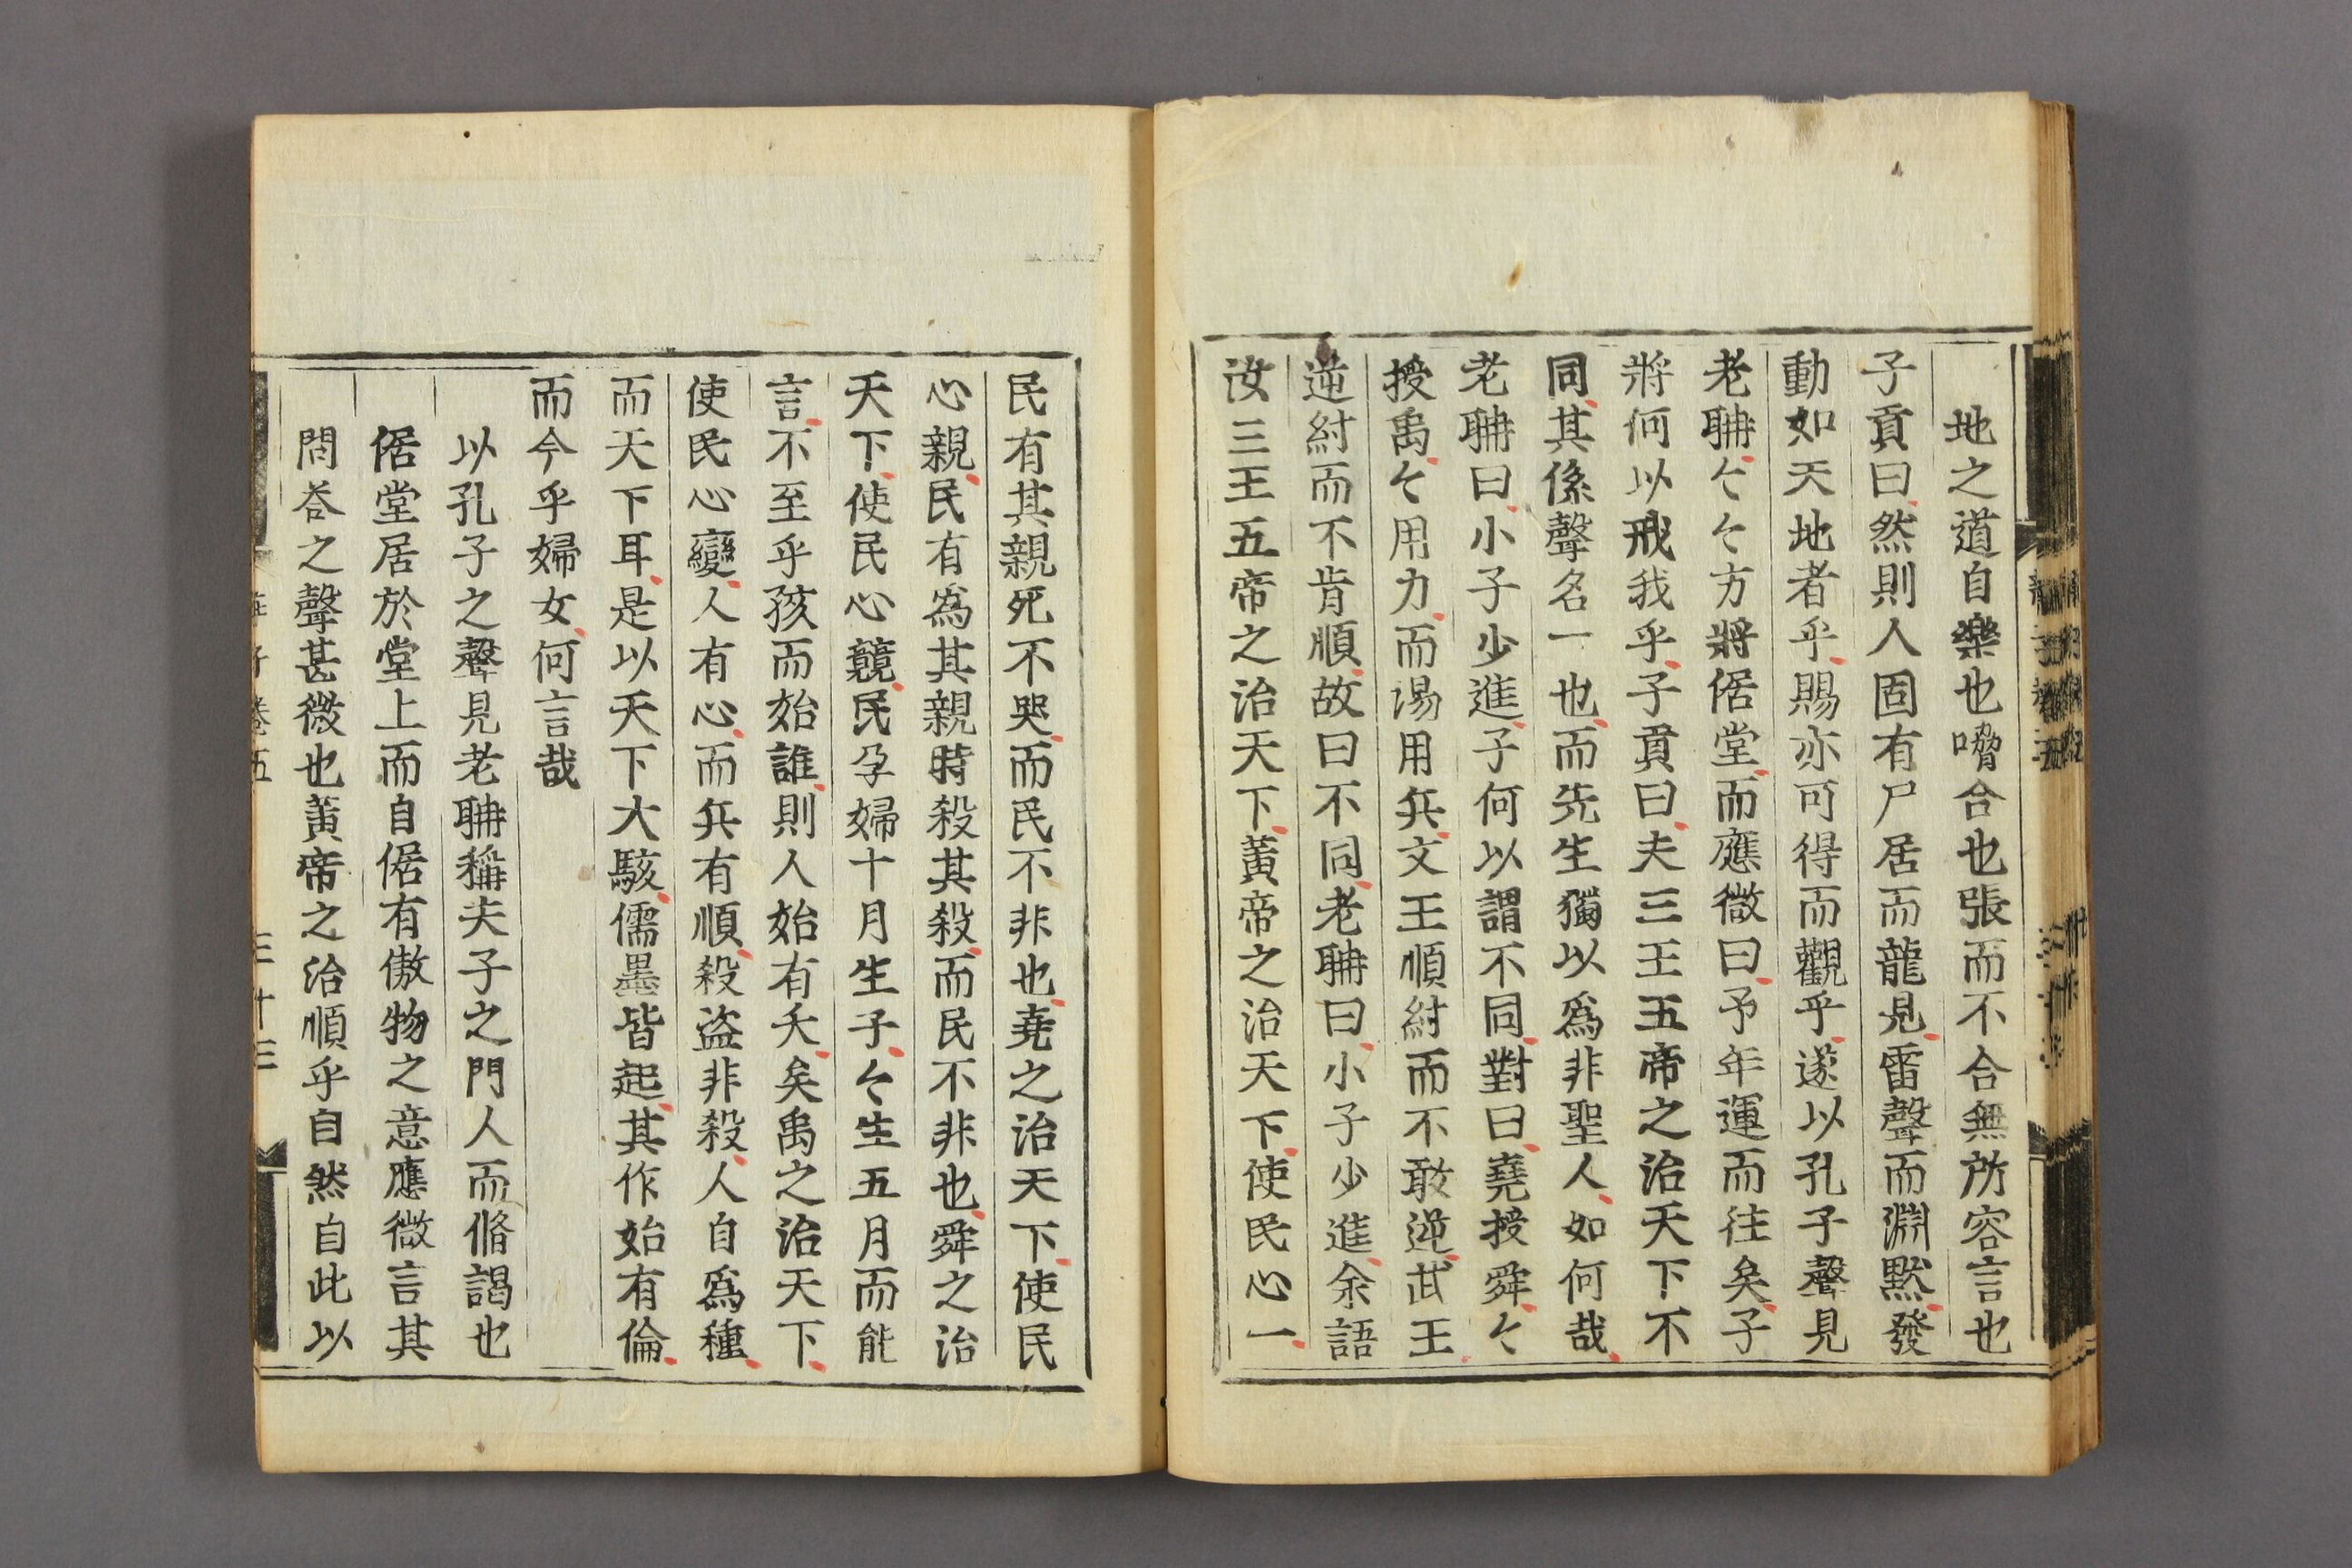 地之道自樂也嗋合也張而不合無所容言也
子貢曰然則人固有尸居而龍見雷聲而淵黙發
動如天地者乎賜亦可得而觀乎遂以孔子聲見
老聃〻〻方將倨堂而應微曰予年運而往矣子
將何以戒我乎子貢曰夫三王五帝之治天下不
同其係聲名一也而先生獨以爲非聖人如何哉
老聃曰小子少進子何以謂不同對曰堯授舜〻
授禹〻用力而湯用兵文王順紂而不敢逆武王
逆紂而不肯順故曰不同老聃曰小子少進余語
汝三王五帝之治天下黃帝之治天下使民心一
民有其親死不哭而民不非也堯之治天下使民
心親民有爲其親時殺其殺而民不非也舜之治
天下使民心競民孕婦十月生子〻生五月而能
言不至乎孩而始誰則人始有夭矣禹之治天下
使民心變人有心而兵有順殺盜非殺人自爲種
而天下耳是以天下大駭儒墨皆起其作始有倫
而今乎婦女何言哉
以孔子之聲見老聃稱夫子之門人而脩謁也
倨堂居於堂上而自倨有傲物之意應微言其
問荅之聲甚微也黃帝之治順乎自然自此以
莊子卷五
三十三